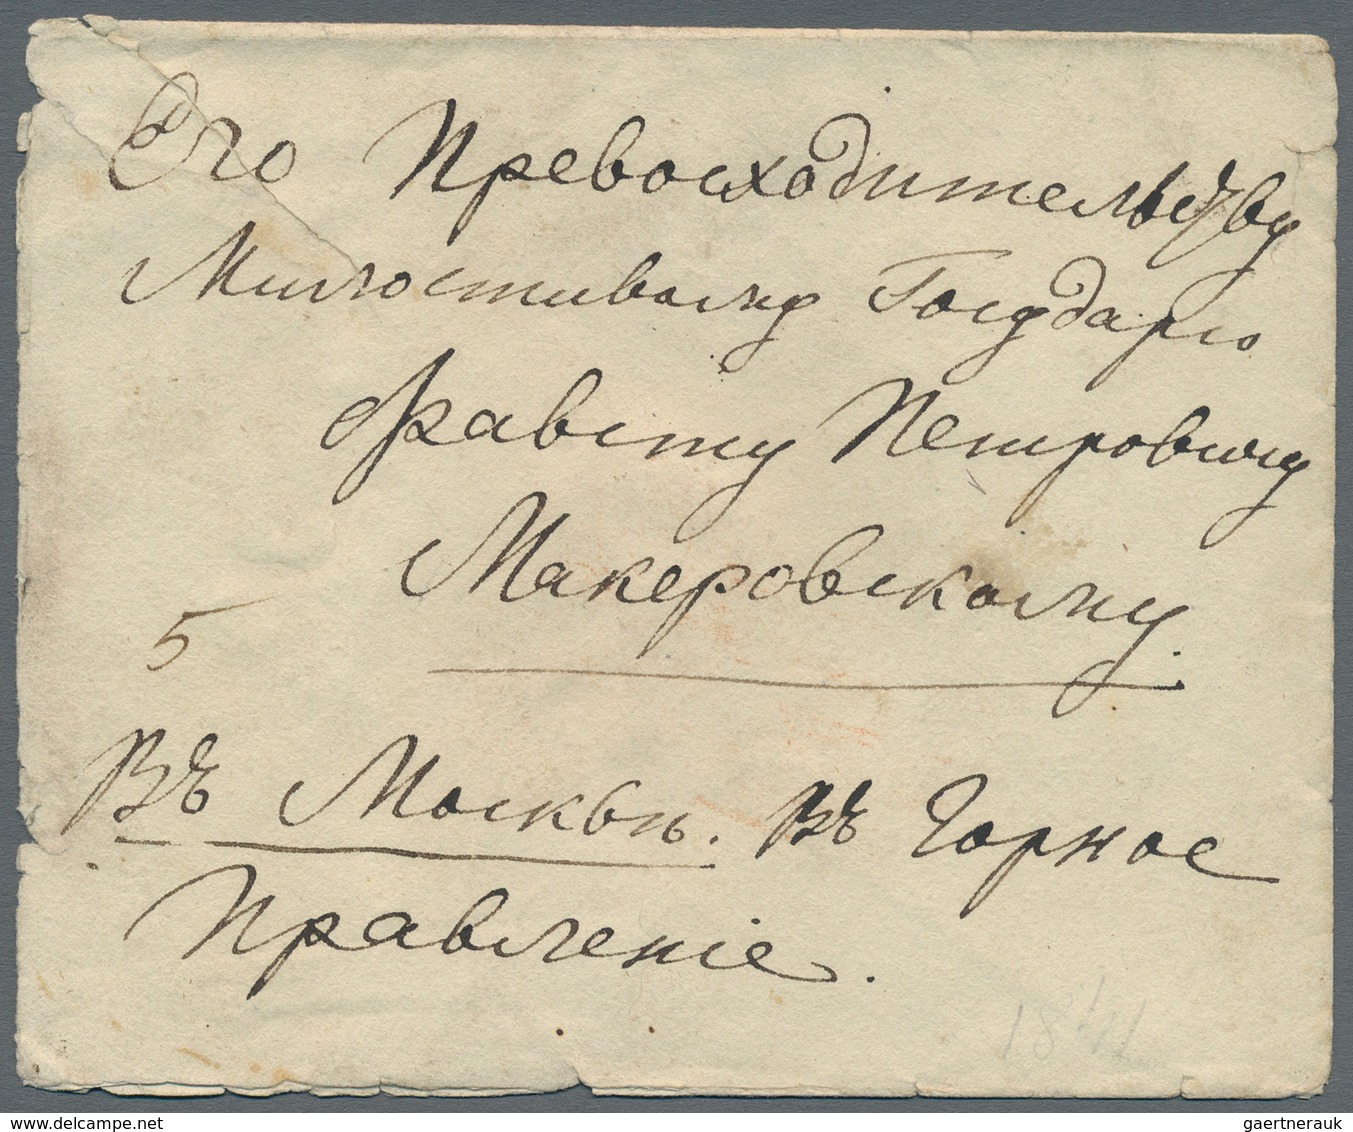 Его Превосходительству
Милостивому Государю
Фавсту Петровичу
Макеровскому.
5
Въ Москвѣ. Въ Горное
Правленіе.
gaertnerauk